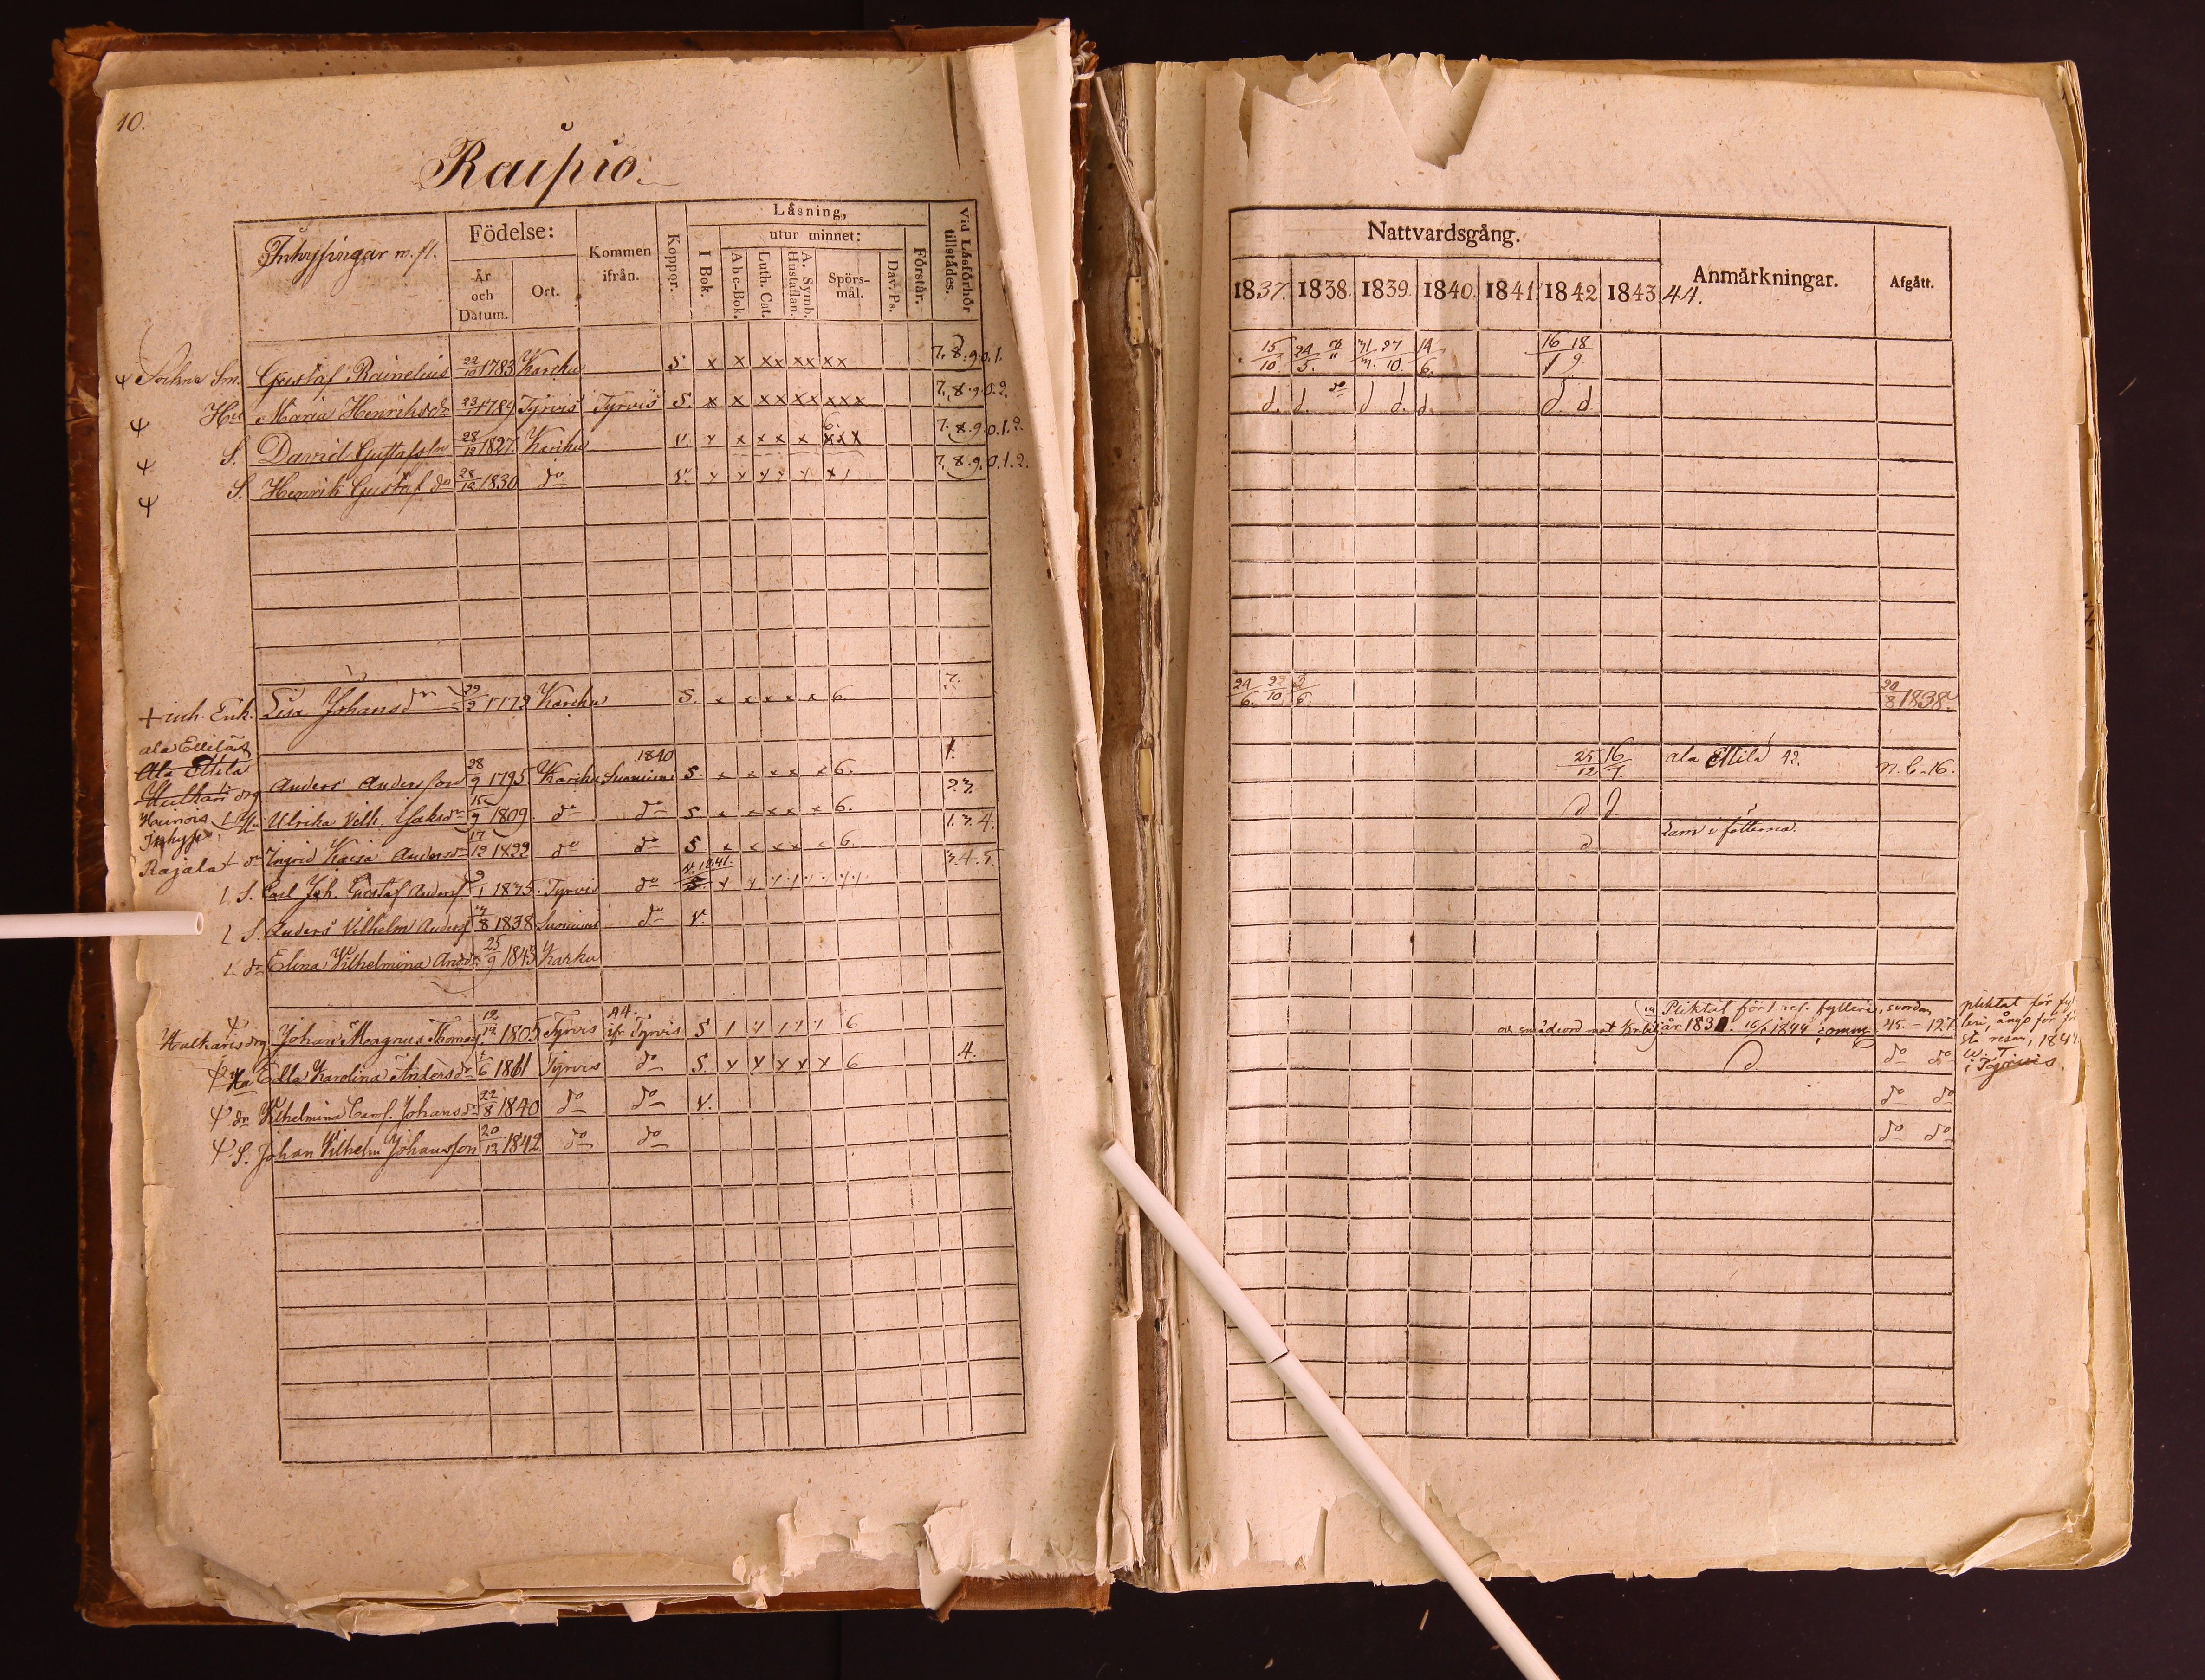 10.
Raipio.
Inhysingar m. fl.
Födelse:
År och Datum.
Ort.
Kommen ifrån.
Koppor.
Läsning,
I Bok.
utur minnet:
Abc-Bok.
Luth. Cat.
A. Symb. Hustaflan.
Spörs-mål.
Dav. Ps.
Förstår.
Vid Läsförhör tillstädes.
Sockne Sm. Gustaf Rainelius 22/10 1783 Karcku S x x xx xx xx 7.8.9.0.1.
Hu Maria Henriksdr 23/1 1789 Tyrvis Tyrvis S. x x xx xx xxx 7.8.9.0.2.
S. David Gustafsson 28/12 1827. Karcku V. x x x x x 6. xxx 7.8.9.0.1.2.
S. Henrik Gustaf do 28/12 1830 do V. 7.8.9.0.1.2.
+ inh. Enk. Lisa Johansdr 29/2 1772 Karcku S. x x x x x 6 7.
ala Ellilä
Ala Ellila
Hulkari drg Anders Andersson 28/9 1795 Karcku 1840 Suoniemi S. x x x x x 6. 1.
Hu Ulrika Vilh. Jaksdr 15/9 1809 do do S x x x x x 6. 2.3.
Inhyse
Rajala + dr Ingrid Kaisa Andersdr 17/12 1822 do do S x x x x x 6. 1.3.4.
S. Carl Joh. Gustaf Anders 9/1 1835. Tyrvis do 3.4.5.
S. Anders Vilhelm Anders 3/8 1838 Suoniemi do V.
dr Elina Vilhelmina Andd. 25/9 1843 Karku
Hulkaris drg Johan Magnus Thomas 12/12 1805 Tyrvis 44. ifr Tyrvis S 6
Ha Edla Karolina Andersdr 1/6 1811 Tyrvis do S 6 4.
dr Vilhelmina Carol. Johansdr 22/8 1840 do do V.
S. Johan Vilhelm Johansson 20/12 1842 do do
Nattvardsgång.
1837. 1838. 1839. 1840. 1841. 1842 1843 44.
Anmärkningar.
Afgått.
15/10 24/5. 31/3. 27/10. 14/6. 16/1 18/9
d. d. do d. d. d. d. d
24/6. 22/10 3/6. 20/8 1838.
25/12 16/7 ala Ellilä 42. n. b. 16.
d d.
d Lam i fötterna.
Pliktat för 1 res. fylleri, svordom
och smädeord mot år 183 16/6 1844 45.-127.
pliktat för fyl
leri, ånyo för
sta resan, 1844
i Tyrvis.
d do do
do do
do do